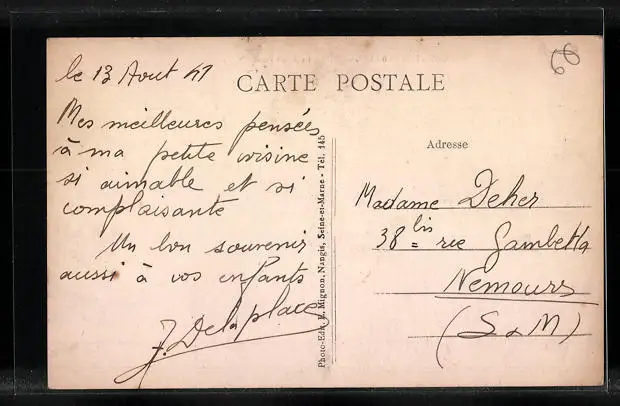 le 13 Aout 41
CARTE POSTALE
60
Mes meilleures pensées
à ma petite voisine
si aimable et si
complaisante
Un bon souvenir
aussi à vos enfants
J. Delaplace
Photo-Edit. E. Mignon, Nangis, Seine-et-Marne - Tél. 145
Adresse
Madame Deher
38 bis rue Gambetta
Nemours
(S&M)